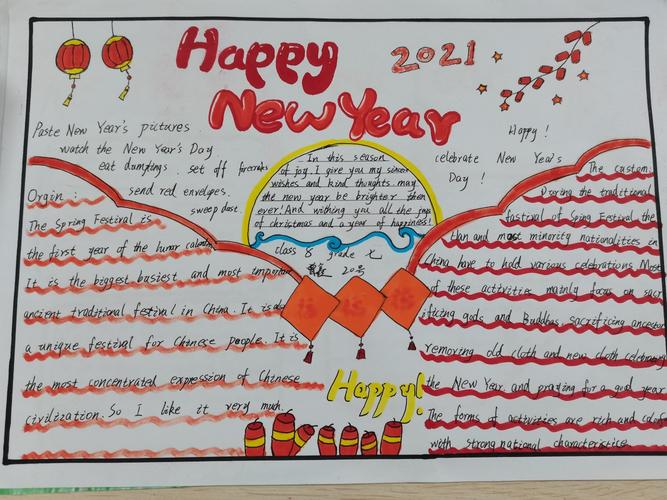 Happy
2021
New Year
Paste New Year's pictures
watch the New Year's Day
eat dumplings. set off firecrackers
send red envelopes.
sweep dust.
Happy!
celebrate New Year's
Day!
In this season
of joy. I give you my sincere
wishes and kind thoughts. may
the new year be brighter than
ever! And wishing you all the joys
of christmas and a year of happiness!
class 8 grade 七
20号
福
福
福
Orgin:
The Spring Festival is
the first year of the lunar calendar
It is the biggest. busiest and most important
ancient traditional festival in China. It is also
a unique festival for Chinese people. It is
the most concentrated expression of Chinese
civilization. So I like it very much.
The custom:
During the traditional
festival of Sping Festival the
Han and most minority nationalities in
China have to hold various celebrations. Most
of these activities mainly focus on sacr
ificing gods and Buddhas, sacrificing ancestor
removing old cloth and new cloth celebrating
the New Year and praying for a good year
The forms of activities are rich and colorful
with strong national characteristics
Happy!